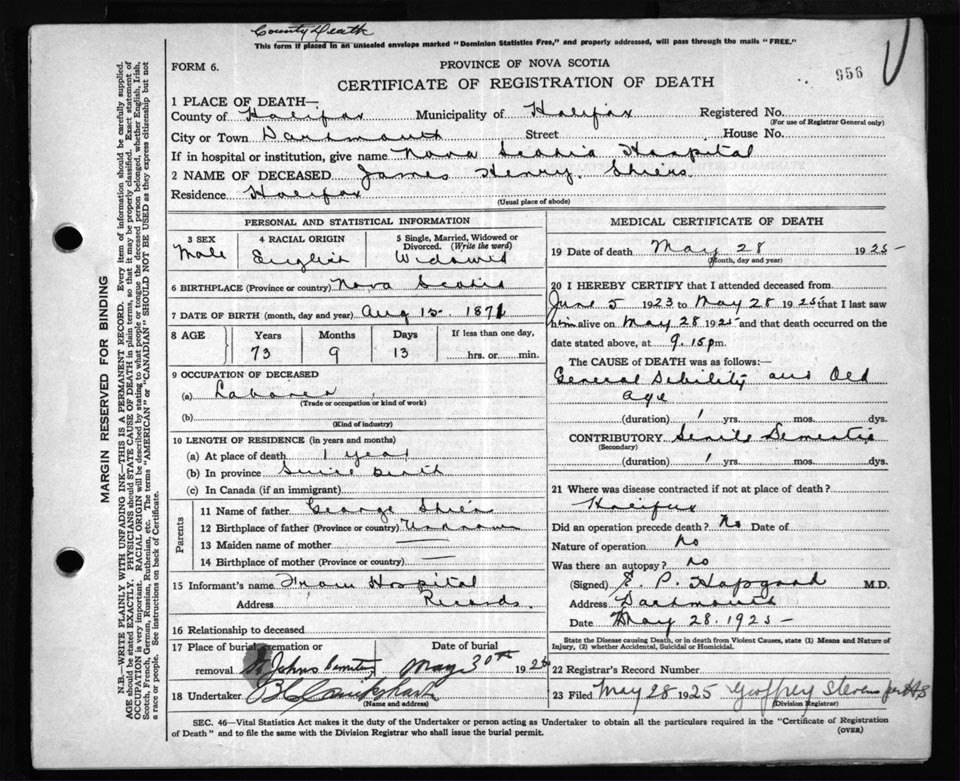 County Death
This form if placed in an unsealed envelope marked "Dominion Statistics Free," and properly addressed, will pass through the mails "FREE."
FORM 6.
PROVINCE OF NOVA SCOTIA
CERTIFICATE OF REGISTRATION OF DEATH
956
1 PLACE OF DEATH—
County of Halifax Municipality of Halifax Registered No.
(For use of Registrar General only)
City or Town Dartmouth Street House No.
If in hospital or institution, give name Nova Scotia Hospital
2 NAME OF DECEASED James Henry Shiers.
Residence Halifax
(Usual place of abode)
PERSONAL AND STATISTICAL INFORMATION
3 SEX 4 RACIAL ORIGIN 5 Single, Married, Widowed or Divorced. (Write the word)
Male English Widowed
6 BIRTHPLACE (Province or country) Nova Scotia
7 DATE OF BIRTH (month, day and year) Aug 15. 1871
8 AGE Years Months Days If less than one day,
73 9 13 hrs. or min.
9 OCCUPATION OF DECEASED
(a) Laborer
(Trade or occupation or kind of work)
(b)
(Kind of industry)
10 LENGTH OF RESIDENCE (in years and months)
(a) At place of death 1 year
(b) In province Since Death
(c) In Canada (if an immigrant)
Parents
11 Name of father George Shiers
12 Birthplace of father (Province or country) Unknown
13 Maiden name of mother
14 Birthplace of mother (Province or country)
15 Informant's name From Hospital
Address Records.
16 Relationship to deceased
17 Place of burial, cremation or removal St Johns Cemetery
Date of burial May 30th 1925
18 Undertaker
(Name and address)
MEDICAL CERTIFICATE OF DEATH
19 Date of death May 28 1925
(Month, day and year)
20 I HEREBY CERTIFY that I attended deceased from
June 5 1923 to May 28 1925 that I last saw
him alive on May 28 1925 and that death occurred on the
date stated above, at 9.15 pm.
The CAUSE of DEATH was as follows:—
General Debility and Old
Age
(duration) 1 yrs. mos. dys.
CONTRIBUTORY Senile Dementia
(Secondary)
(duration) 1 yrs. mos. dys.
21 Where was disease contracted if not at place of death?
Halifax
Did an operation precede death? No Date of
Nature of operation No
Was there an autopsy? No
(Signed) E. P. Hapgood M.D.
Address Dartmouth
Date May 28. 1925
State the Disease causing Death, or in death from Violent Causes, state (1) Means and Nature of
Injury, (2) whether Accidental, Suicidal or Homicidal.
22 Registrar's Record Number
23 Filed May 28 1925 Geoffrey Stevens per
(Division Registrar)
SEC. 46—Vital Statistics Act makes it the duty of the Undertaker or person acting as Undertaker to obtain all the particulars required in the "Certificate of Registration
of Death" and to file the same with the Division Registrar who shall issue the burial permit.
(OVER)
MARGIN RESERVED FOR BINDING
N.B.—WRITE PLAINLY WITH UNFADING INK—THIS IS A PERMANENT RECORD. Every item of information should be carefully supplied.
AGE should be stated EXACTLY. PHYSICIANS should STATE CAUSE OF DEATH in plain terms, so that it may be properly classified. Exact statement of
OCCUPATION is very important. RACIAL ORIGIN will be described by stating to what people or tongue the deceased person belonged, whether English, Irish,
Scotch, French, German, Russian, Ruthenian, etc. The terms "AMERICAN" or "CANADIAN" SHOULD NOT BE USED as they express citizenship but not
a race or people. See instructions on back of Certificate.